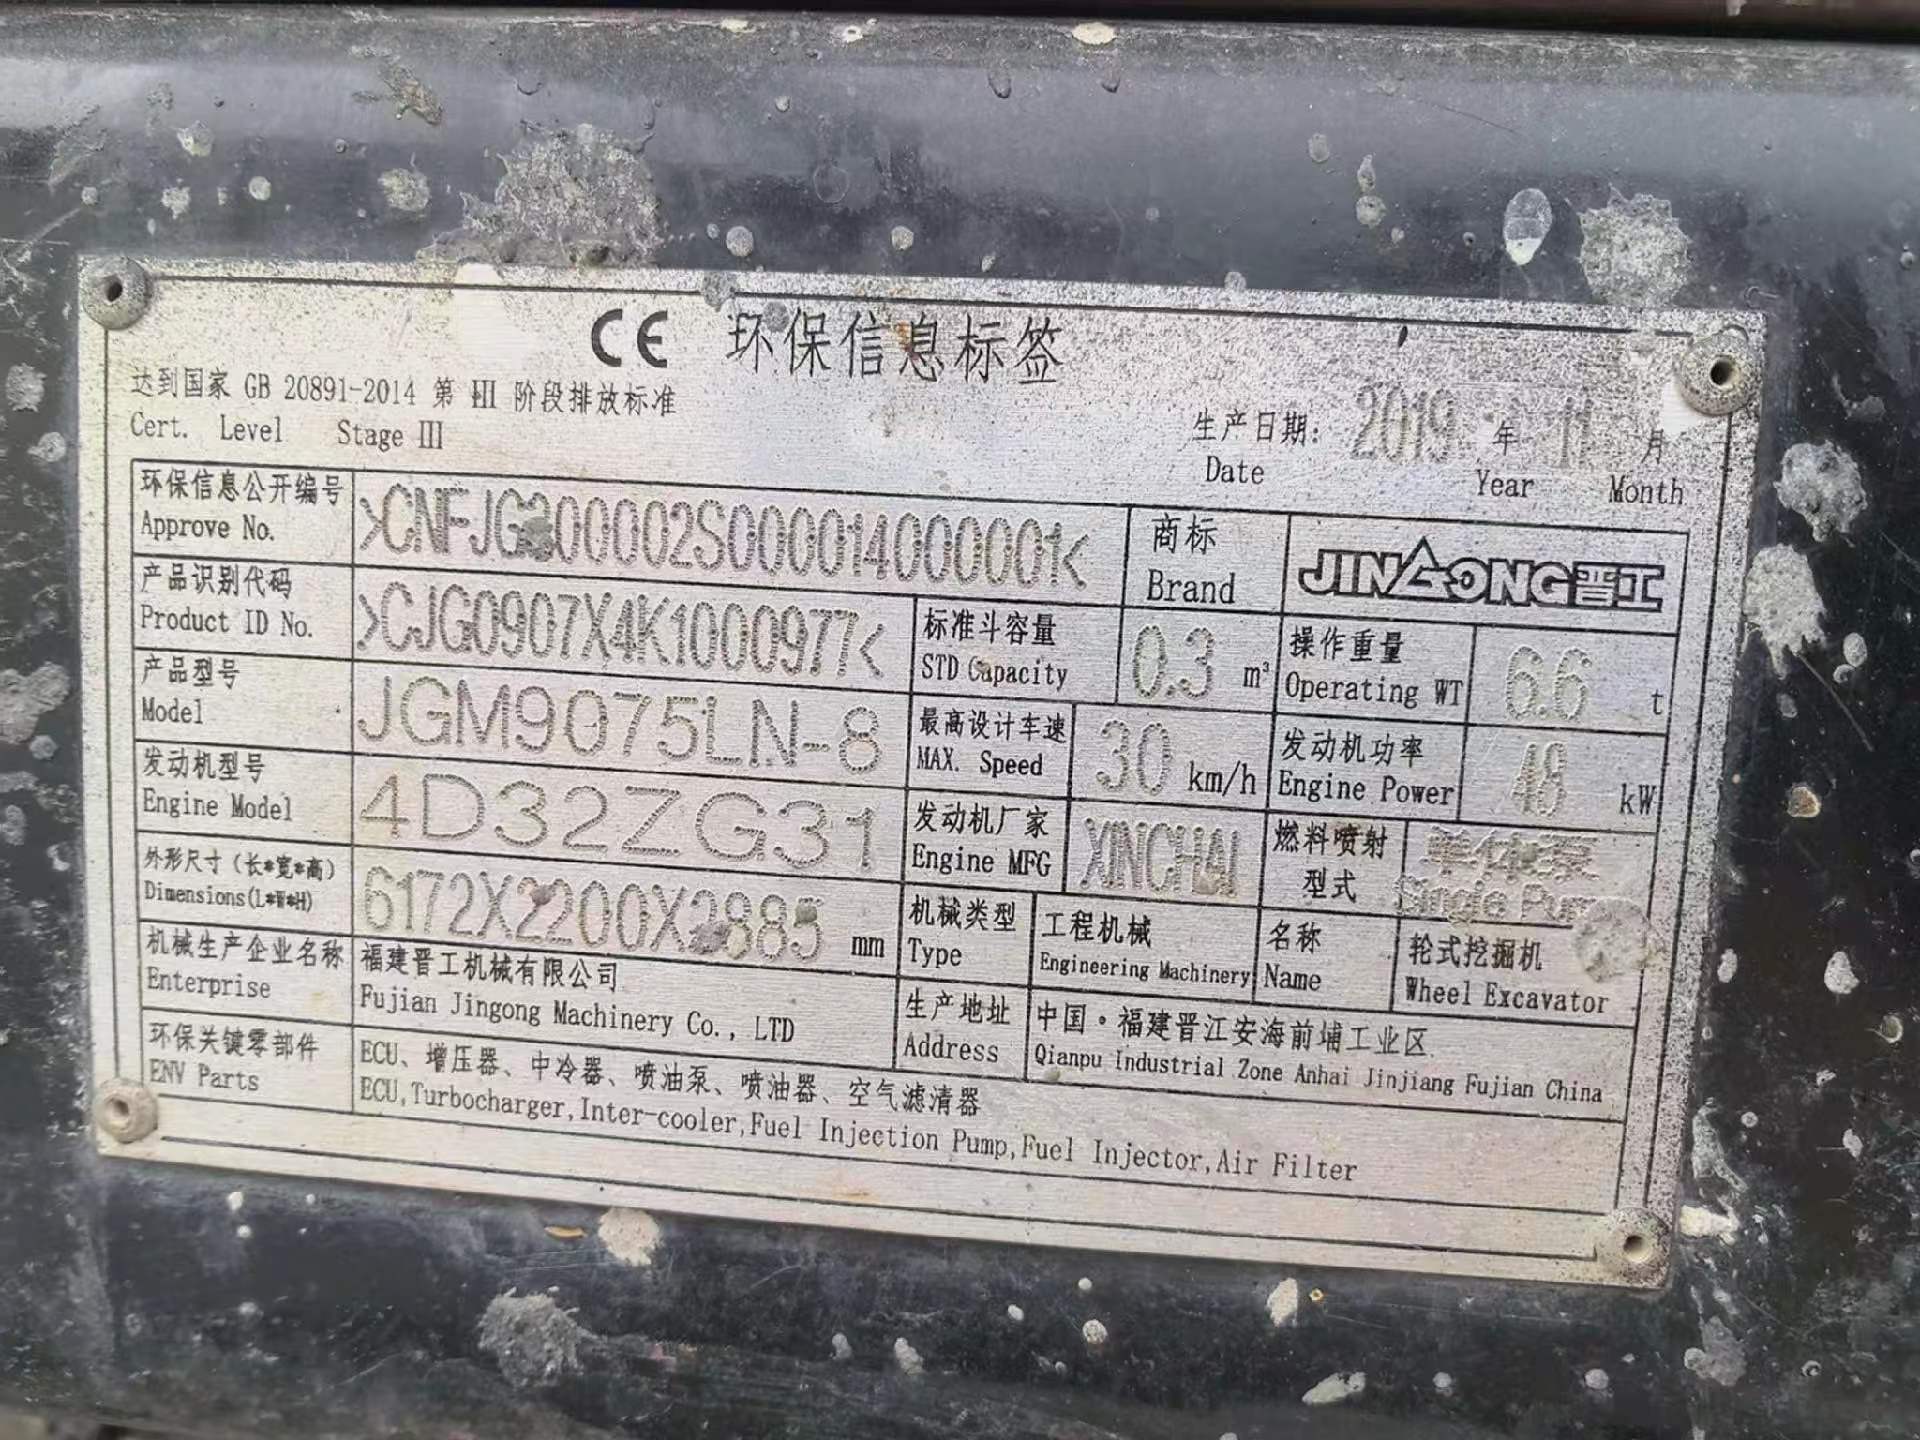 CE 环保信息标签
达到国家 GB 20891-2014 第 III 阶段排放标准
Cert. Level Stage III
生产日期: 2019 年 11 月
Date Year Month
环保信息公开编号
Approve No.
>CNFJG300002S000014000001<
商标
Brand
JINGONG晋工
产品识别代码
Product ID No.
>CJG0907X4K1000977<
标准斗容量
STD Capacity
0.3 m³
操作重量
Operating WT
6.6 t
产品型号
Model
JGM9075LN-8
最高设计车速
MAX. Speed
30 km/h
发动机功率
Engine Power
48 kW
发动机型号
Engine Model
4D32ZG31
发动机厂家
Engine MFG
XINCHAI
燃料喷射
型式
单体泵
Single
外形尺寸 (长*宽*高)
Dimensions(L*W*H)
6172X2200X2885 mm
机械类型
Type
工程机械
Engineering Machinery
名称
Name
轮式挖掘机
Wheel Excavator
机械生产企业名称
Enterprise
福建晋工机械有限公司
Fujian Jingong Machinery Co., LTD
生产地址
Address
中国·福建晋江安海前埔工业区
Qianpu Industrial Zone Anhai Jinjiang Fujian China
环保关键零部件
ENV Parts
ECU、增压器、中冷器、喷油泵、喷油器、空气滤清器
ECU,Turbocharger,Inter-cooler,Fuel Injection Pump,Fuel Injector,Air Filter